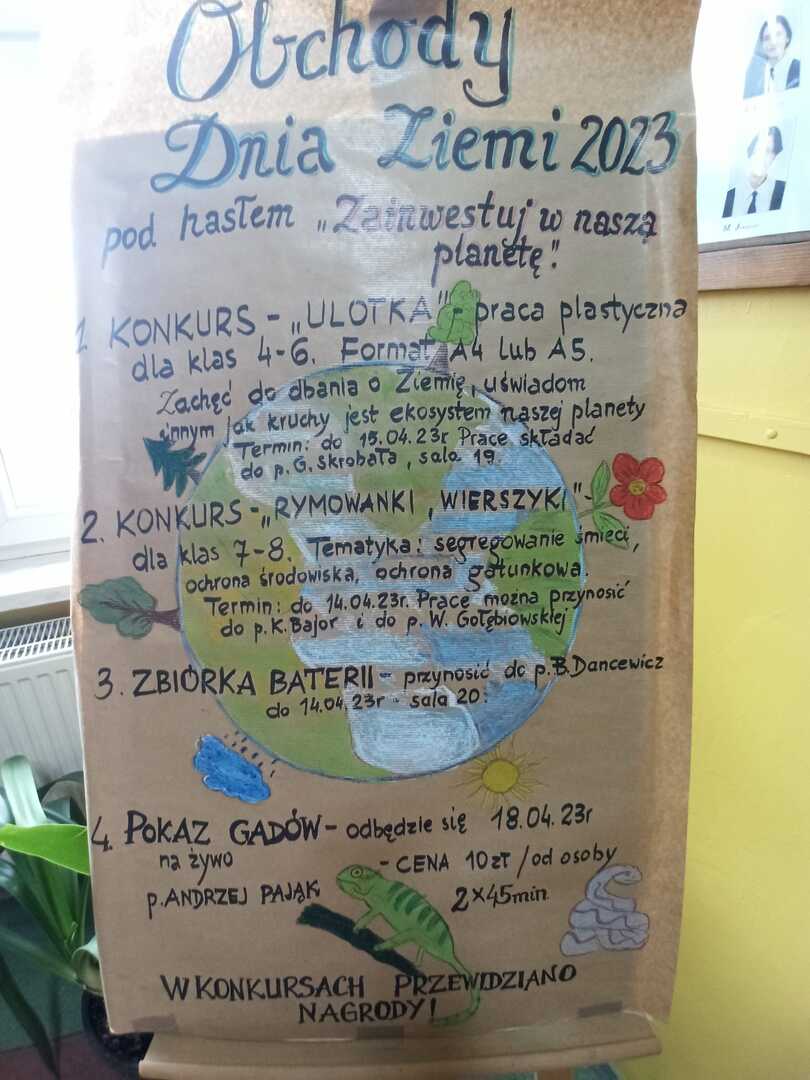 Obchody
Dnia Ziemi 2023
pod hasłem „Zainwestuj w naszą
planetę".
1. KONKURS - „ULOTKA" - praca plastyczna
dla klas 4-6. Format A4 lub A5.
Zachęć do dbania o Ziemię, uświadom
innym jak kruchy jest ekosystem naszej planety
Termin: do 15.04.23r Prace składać
do p. G. Skrobała, sala 19.
2. KONKURS - „RYMOWANKI, WIERSZYKI" -
dla klas 7-8. Tematyka: segregowanie śmieci,
ochrona środowiska, ochrona gatunkowa.
Termin: do 14.04.23r. Prace można przynosić
do p. K. Bajor i do p. W. Gołębiowskiej
3. ZBIÓRKA BATERII - przynosić do p. B. Dancewicz
do 14.04.23r - sala 20.
4. POKAZ GADÓW - odbędzie się 18.04.23r
na żywo - CENA 10zł / od osoby
p. ANDRZEJ PAJĄK 2x45min
W KONKURSACH PRZEWIDZIANO
NAGRODY!